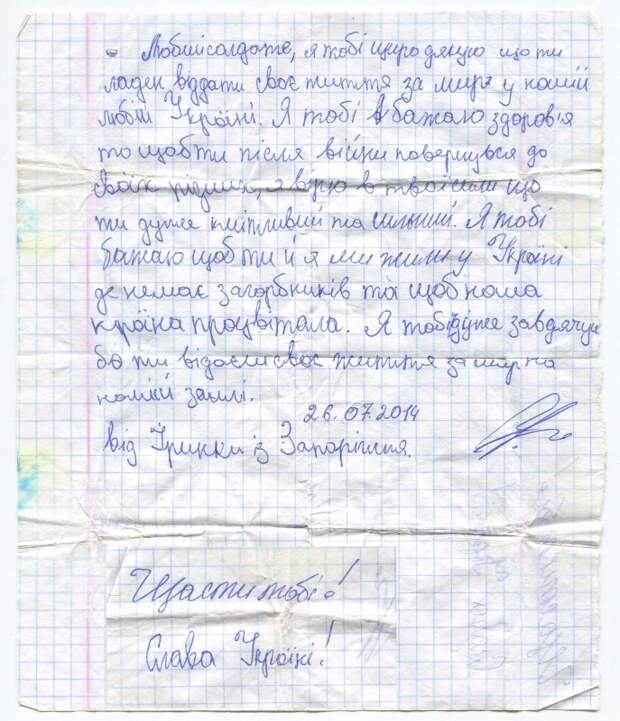 Любий солдате, я тобі щиро дякую що ти
ладен віддати своє життя за мир у нашій
любій Україні. Я тобі бажаю здоров'я
то щоб ти після війни повернувся до
своїх рідних, я вірю в твої сили що
ти дуже кмітливий та сильний. Я тобі
бажаю щоб ти й я ми жили у Україні
де немає загорбників та щоб наша
країна процвітала. Я тобі дуже завдячую
бо ти відаєш своє життя за мир на
нашій землі.
26.07.2014
від Іринки із Запоріжжя.
Щасти тобі!
Слава Україні!